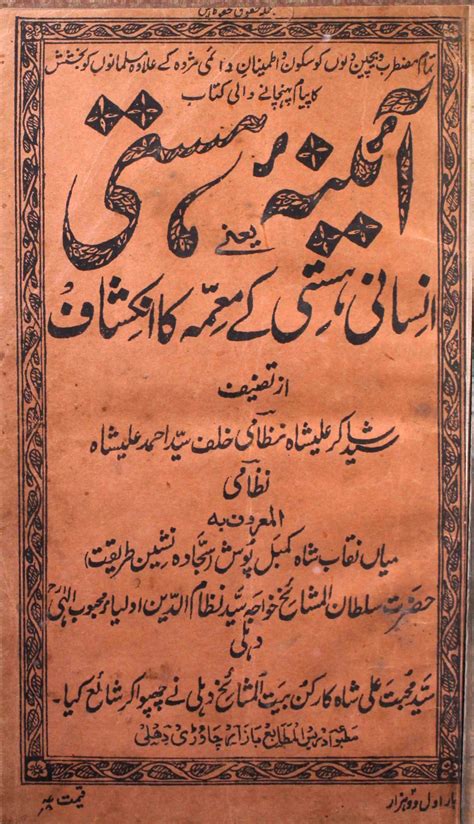 تمام مضطرب و بیچین دلوں کو سکون و اطمینان دائمی مژدہ کے علاوہ مسلمانوں کو بخشش
کا پیام پہنچانے والی کتاب
آئینہ ہستی
یعنے
انسانی ہستی کے معمہ کا انکشاف
از تصنیف
سید شاکر علیشاہ نظامی خلف سید احمد علیشاہ
نظامی
المعروف به
میاں نقاب شاہ کمبل پوش (سجادہ نشین طریقت)
حضرت سلطان المشائخ خواجہ سید نظام الدین اولیاء محبوب الٰہی رح
دہلی
سید محبت علی شاہ کارکن بیت المشائخ دہلی نے چھپوا کر شائع کیا۔
المطابع بازار چاوڑی دهلی
بار اول دو ہزار
قیمت